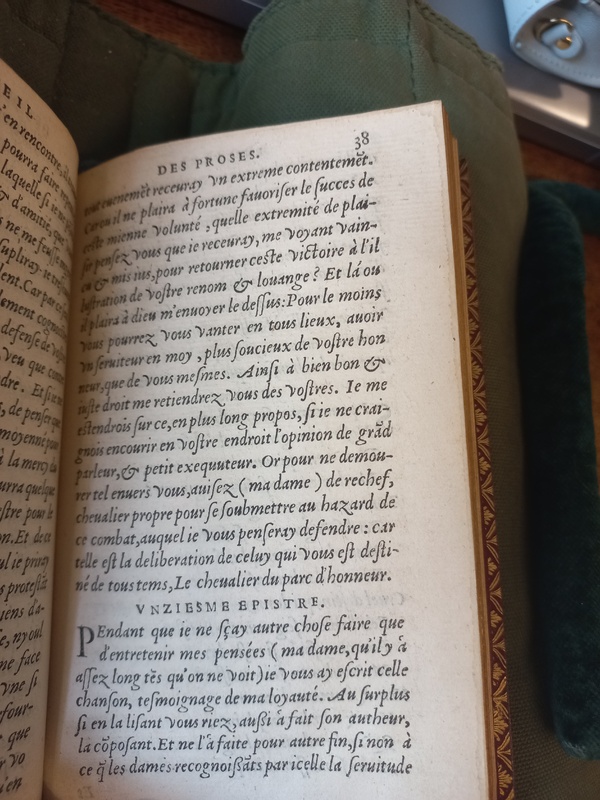 EIL
'en rencontre,
pourra faire
laquelle si ie
d'amitie, que
ne me feusse
supliray-ie
lent. Car par ce
lement cognois
defense de vo
veu que com
dre. Et si ie
, de penser que
moyenne pour
à la mercy du
urra quelque
estre pour le
n. Et de ce
ul ie priray
s protestāt
iens d'a-
e, ny oul
me face
vne si
four-
que
or vo
ien
DES PROSES. 38
tout euenemēt receuray vn extreme contentemēt.
Car ou il ne plaira à fortune fauoriser le succes de
ceste mienne volunté, quelle extremité de plai-
sir pensez vous que ie receuray, me voyant vain-
cu & mis ius, pour retourner ceste victoire à l'il
lustration de vostre renom & louange? Et là ou
il plaira à dieu m'enuoyer le dessus: Pour le moins
vous pourrez vous vanter en tous lieux, auoir
vn seruiteur en moy, plus soucieux de vostre hon
neur, que de vous mesmes. Ainsi à bien bon &
iuste droit me retiendrez vous des vostres. Ie me
estendrois sur ce, en plus long propos, si ie ne crai-
gnois encourir en vostre endroit l'opinion de grād
parleur, & petit exequuteur. Or pour ne demou-
rer tel enuers vous, auisez (ma dame) de rechef,
cheualier propre pour se soubmettre au hazard de
ce combat, auquel ie vous penseray defendre: car
telle est la deliberation de celuy qui vous est desti-
né de tous tems, Le cheualier du parc d'honneur.
VNZIESME EPISTRE.
PEndant que ie ne sçay autre chose faire que
d'entretenir mes pensées (ma dame, qu'il y à
assez long tēs qu'on ne voit) ie vous ay escrit celle
chanson, tesmoignage de ma loyauté. Au surplus
si en la lisant vous riez, aussi à fait son autheur,
la cōposant. Et ne l'à faite pour autre fin, si non à
ce q̃ les dames recognoissāts par icelle la seruitude